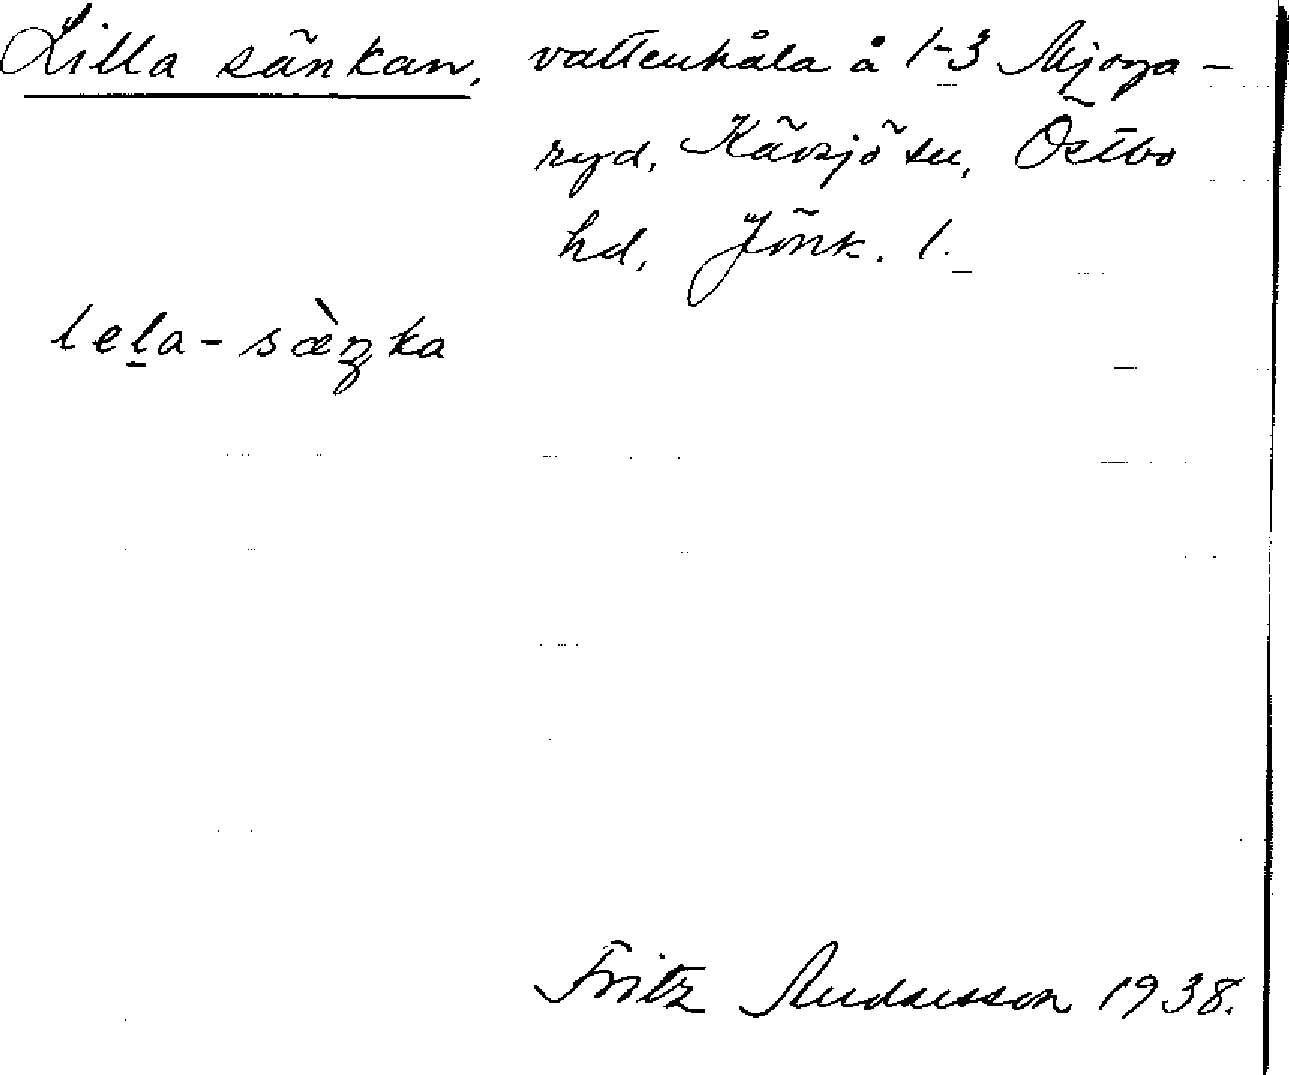 Lilla sänkan, vattenhåla å 1-3 Mjoga-
ryd, Kävsjö sn, Östbo
hd, Jönk. l.
lela-sæ̀ŋka
Fritz Andersson 1938.